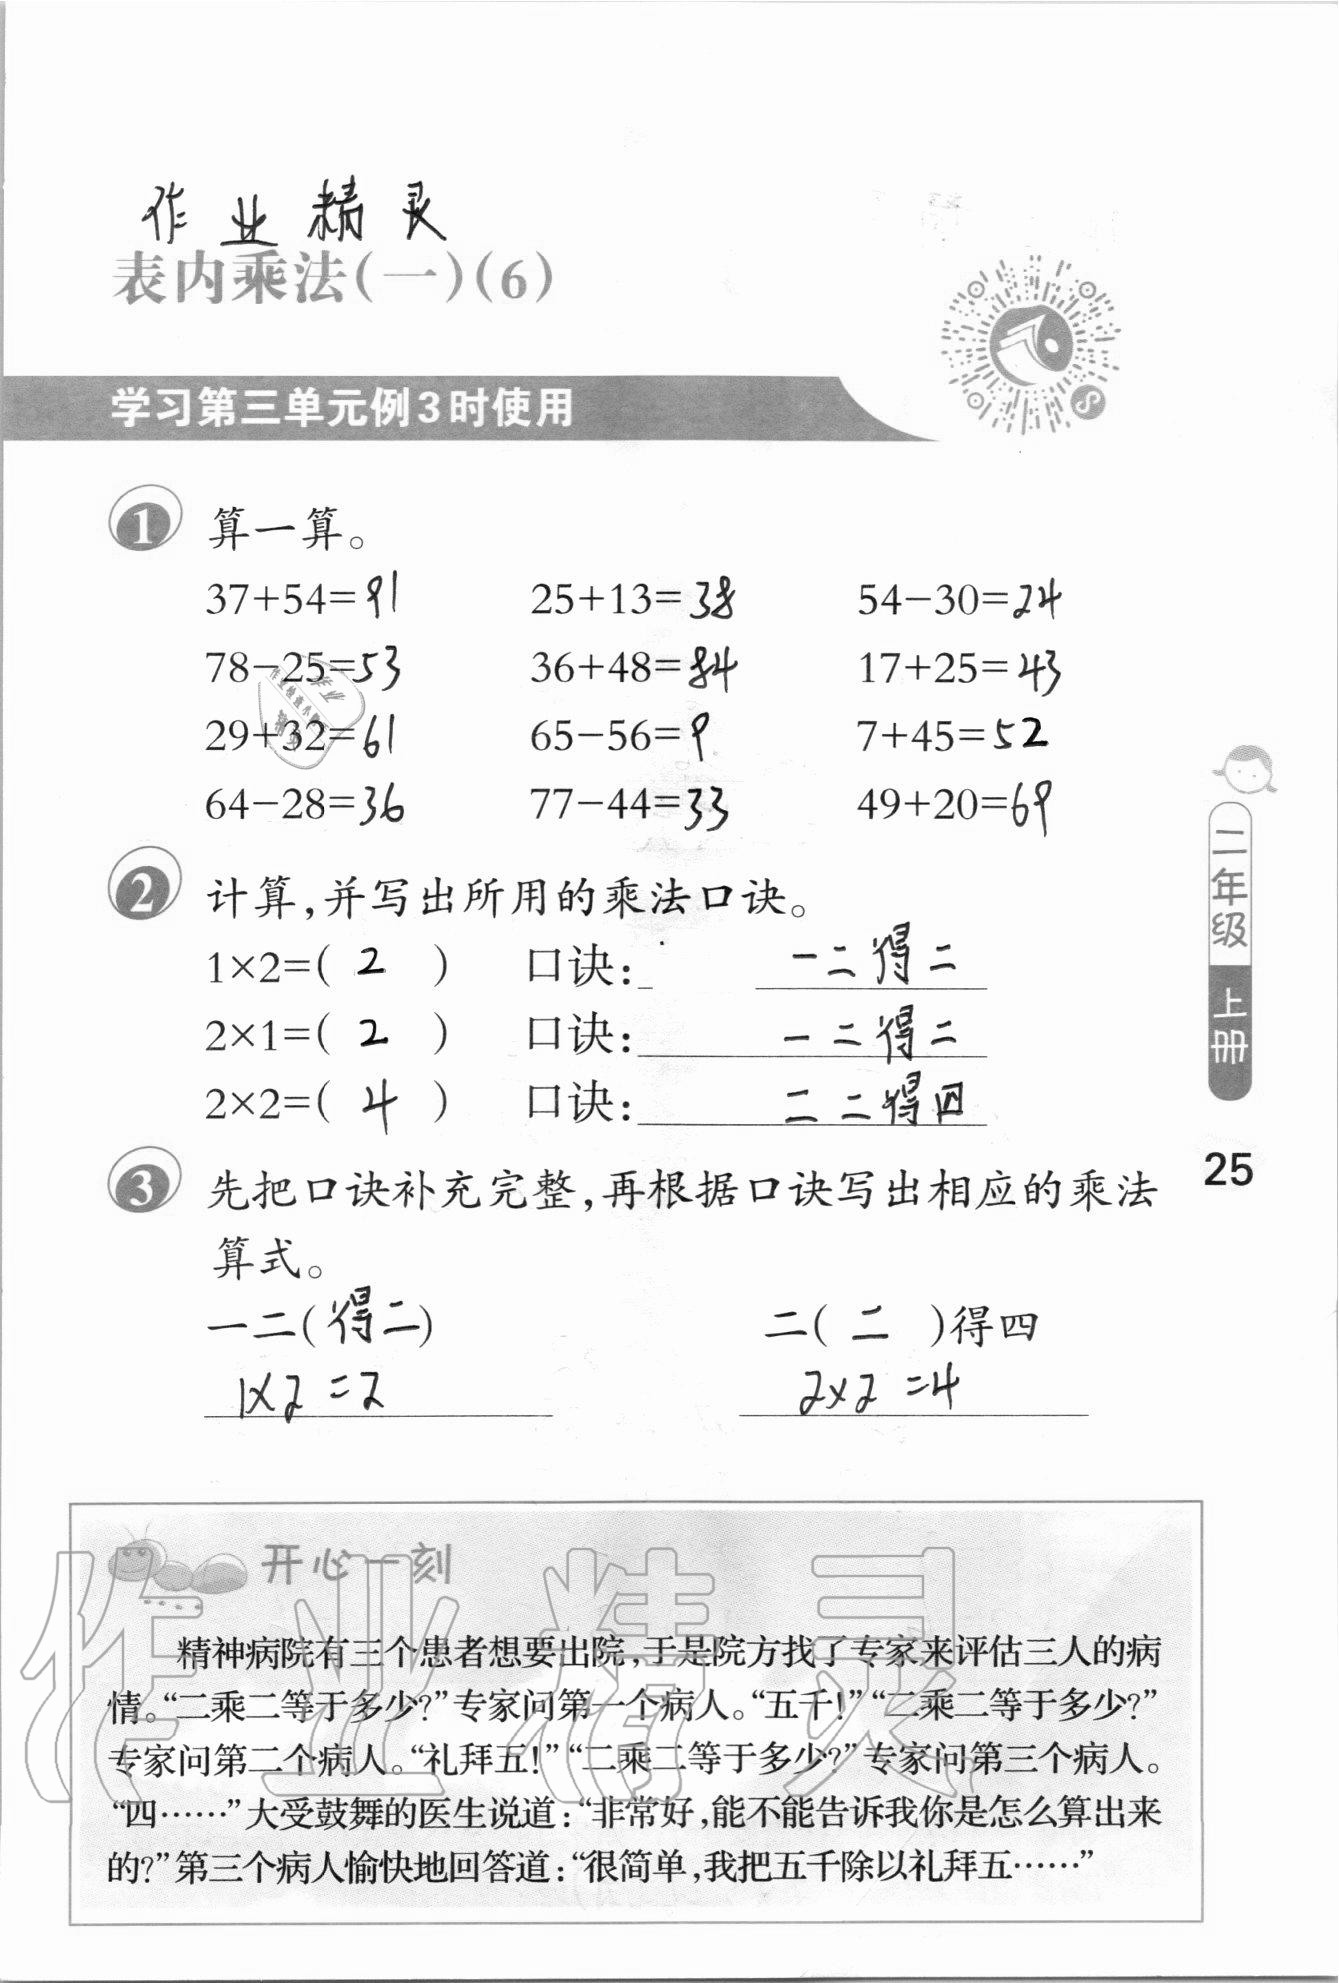 作业精灵
表内乘法(一)(6)
学习第三单元例3时使用
1 算一算。
37+54=91 25+13=38 54-30=24
78-25=53 36+48=84 17+25=43
29+32=61 65-56=9 7+45=52
64-28=36 77-44=33 49+20=69
2 计算,并写出所用的乘法口诀。
1×2=( 2 ) 口诀: 一二得二
2×1=( 2 ) 口诀: 一二得二
2×2=( 4 ) 口诀: 二二得四
3 先把口诀补充完整,再根据口诀写出相应的乘法
算式。
一二(得二) 二( 二 )得四
1×2=2 2×2=4
二年级
上册
25
开心一刻
精神病院有三个患者想要出院,于是院方找了专家来评估三人的病
情。“二乘二等于多少?”专家问第一个病人。“五千!”“二乘二等于多少?”
专家问第二个病人。“礼拜五!”“二乘二等于多少?”专家问第三个病人。
“四……”大受鼓舞的医生说道:“非常好,能不能告诉我你是怎么算出来
的?”第三个病人愉快地回答道:“很简单,我把五千除以礼拜五……”
作业精灵